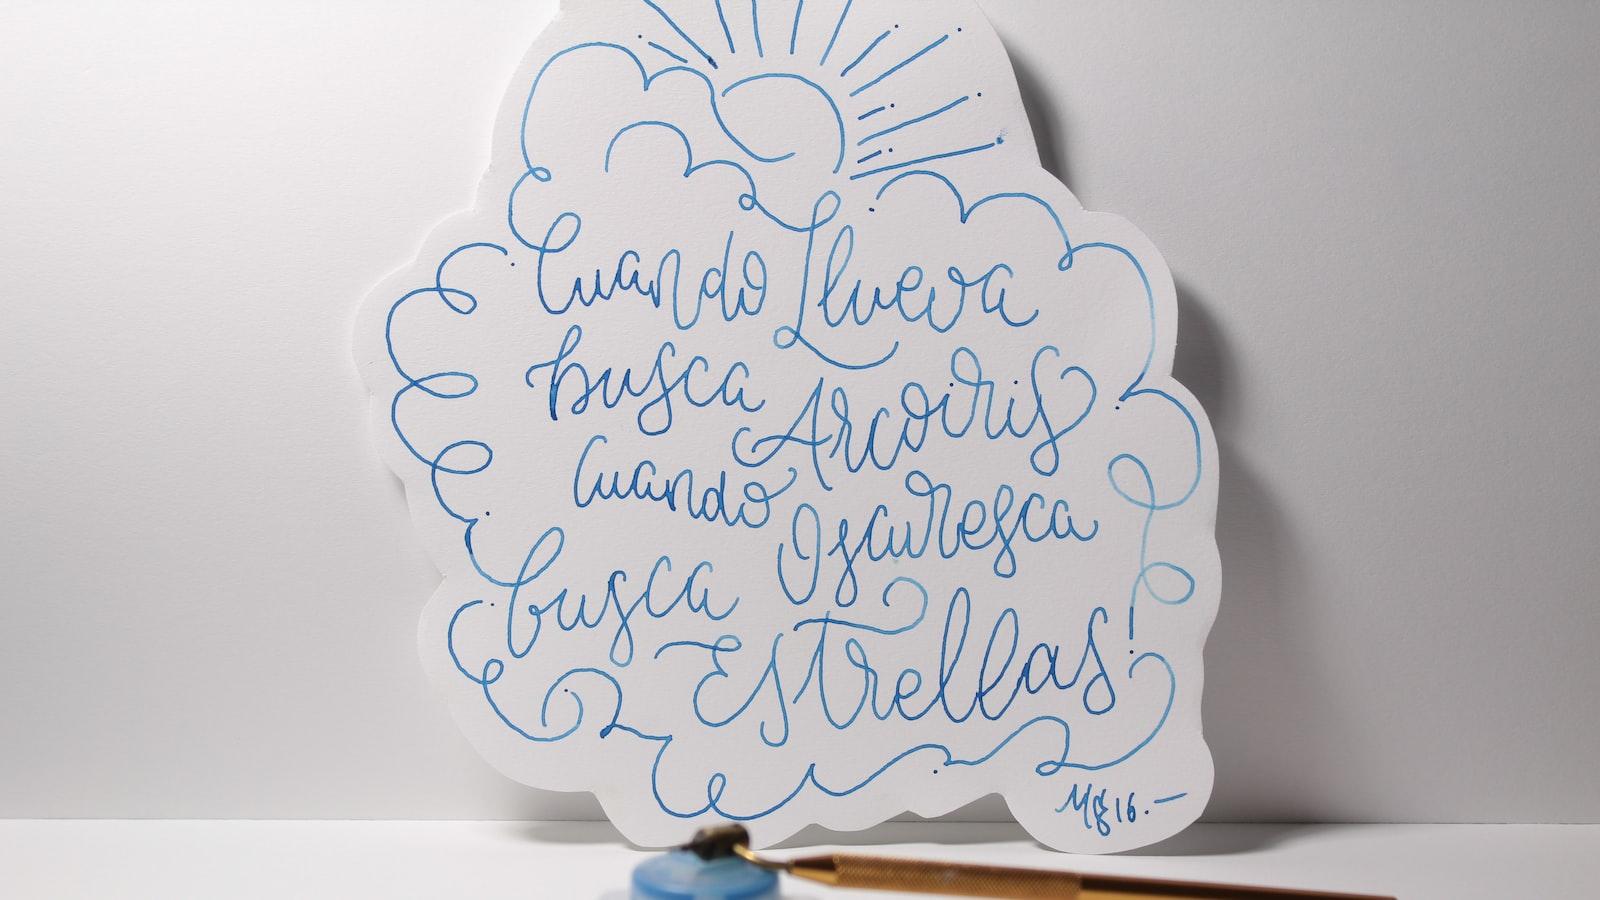 Cuando Llueva
busca Arcoiris
Cuando Oscuresca
busca
Estrellas
Mg16.-